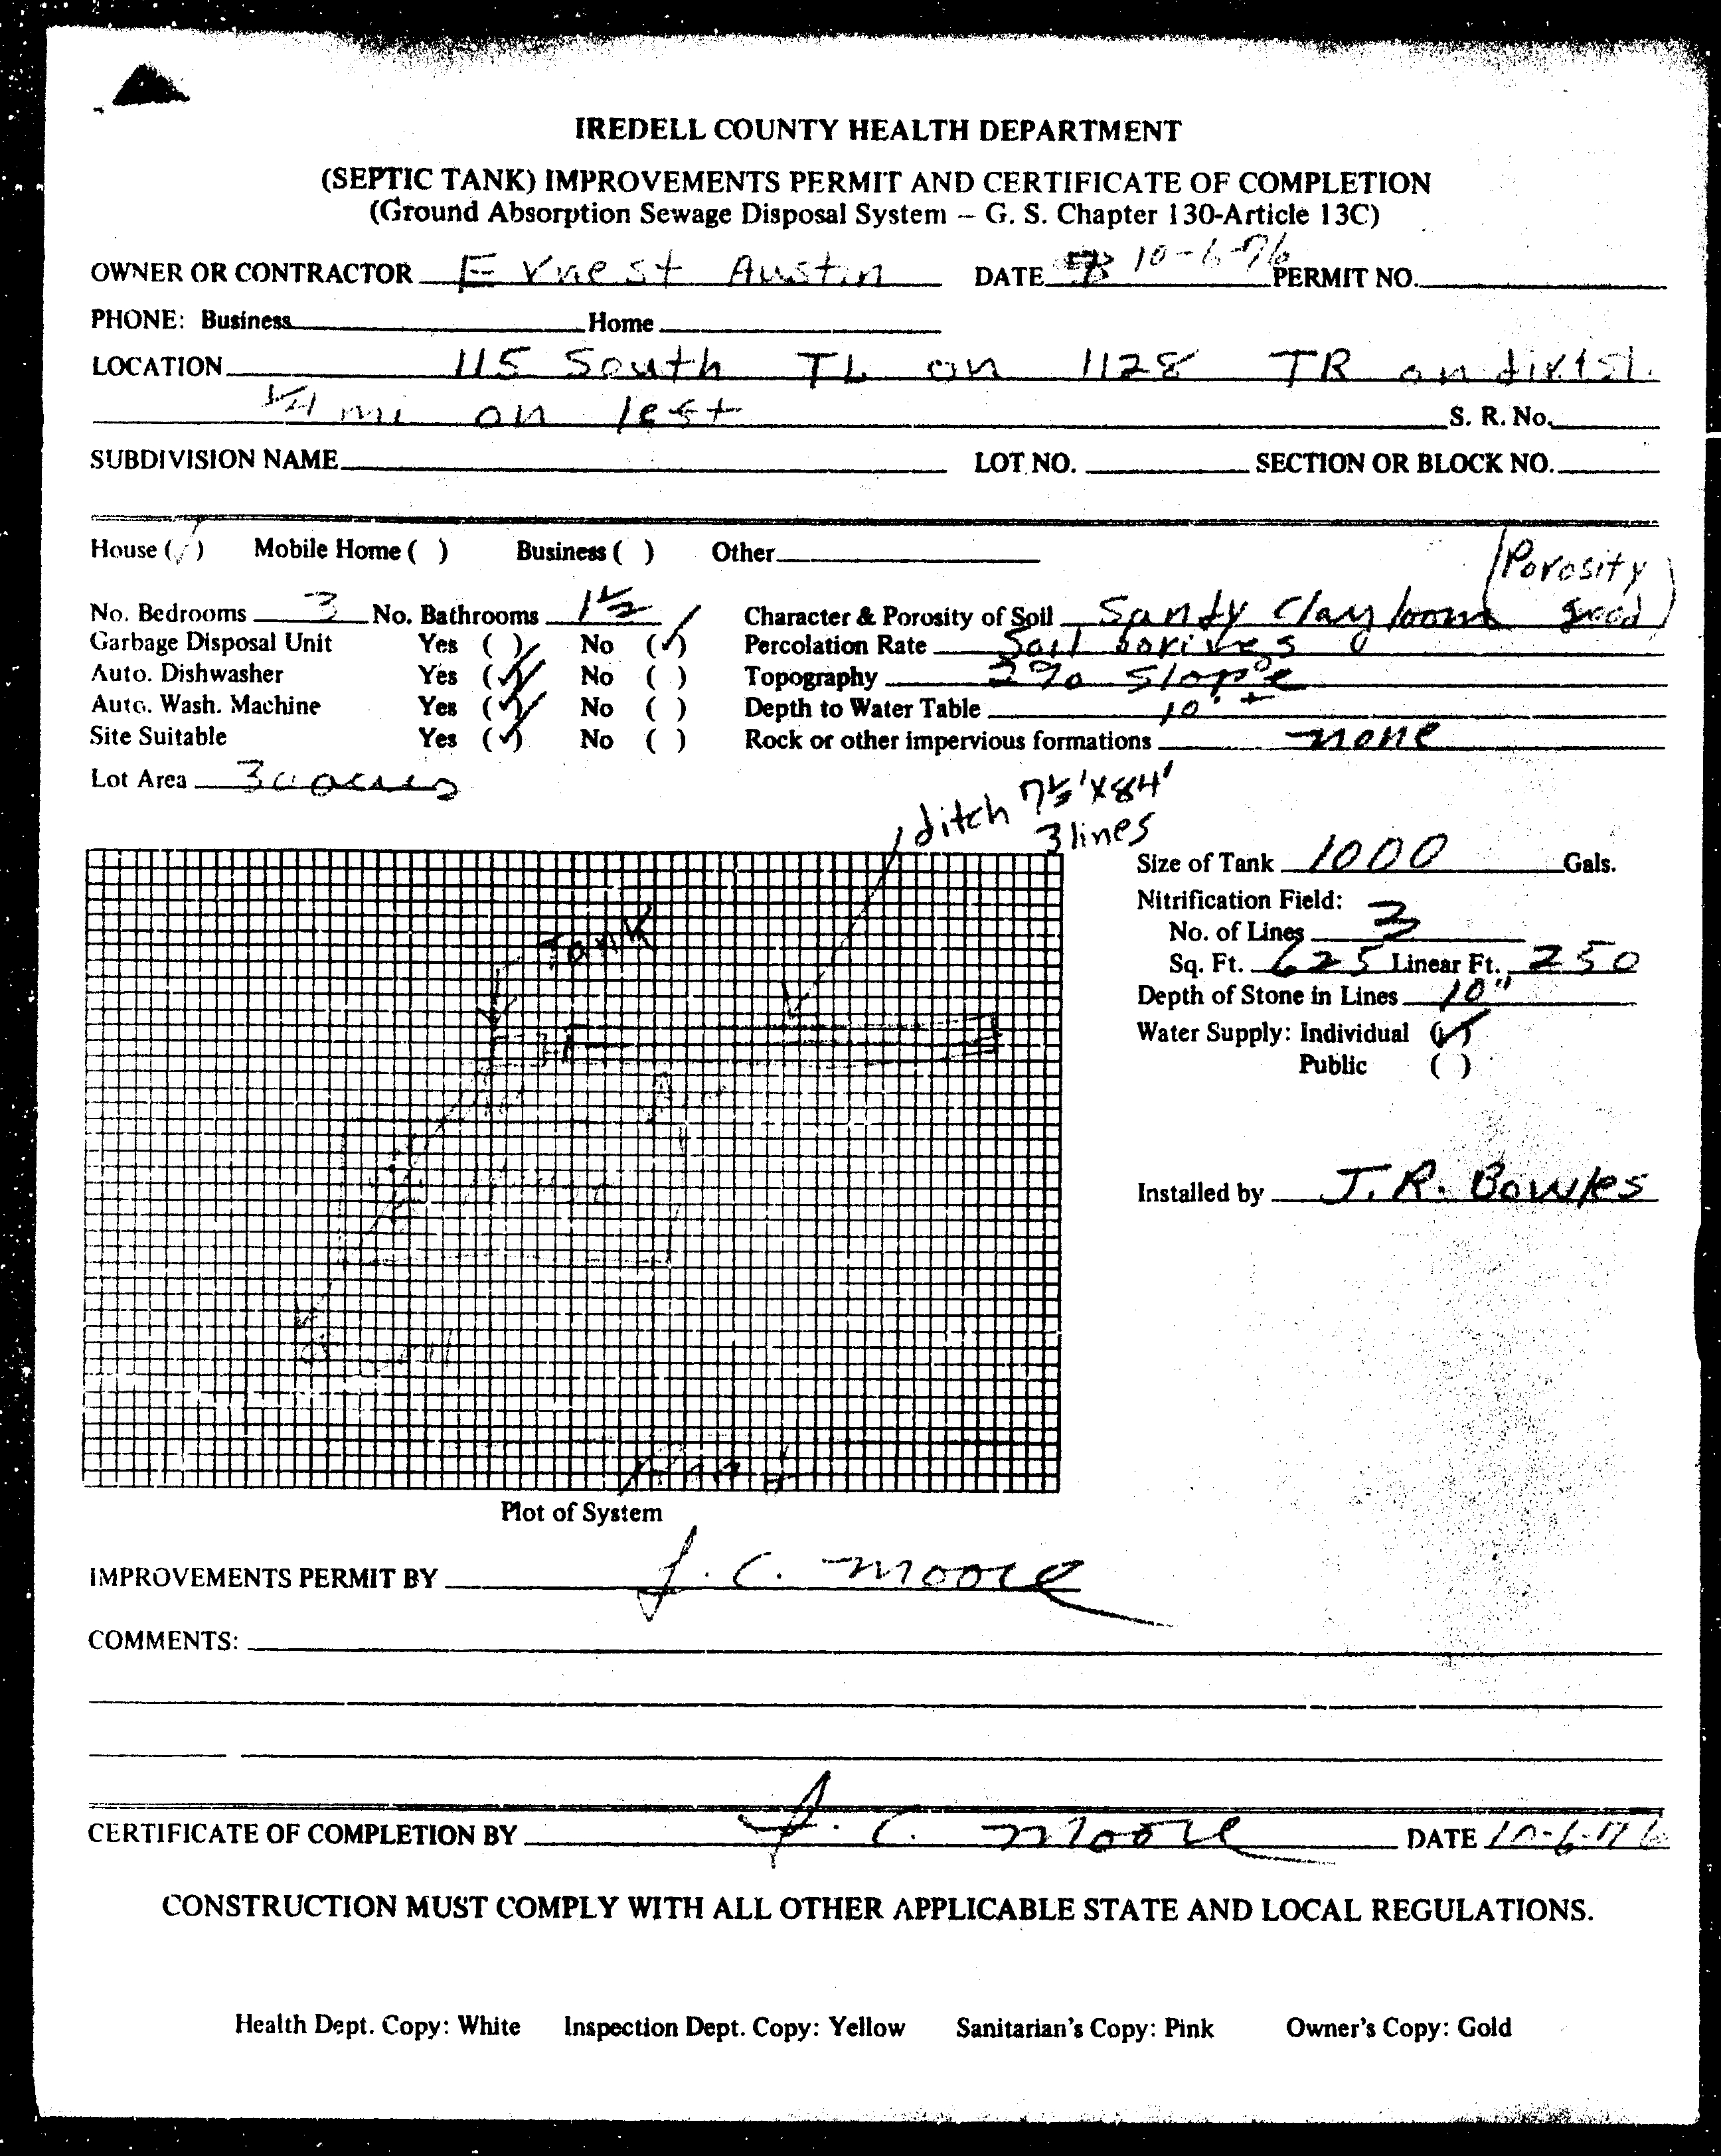 IREDELL COUNTY HEALTH DEPARTMENT
(SEPTIC TANK) IMPROVEMENTS PERMIT AND CERTIFICATE OF COMPLETION
(Ground Absorption Sewage Disposal System – G. S. Chapter 130-Article 13C)
OWNER OR CONTRACTOR Ernest Austin DATE 10-6-76 PERMIT NO.
PHONE: Business Home
LOCATION 115 South TL on 1128 TR on dirt
1/4 mi on left S. R. No.
SUBDIVISION NAME LOT NO. SECTION OR BLOCK NO.
House (✓) Mobile Home ( ) Business ( ) Other
No. Bedrooms 3 No. Bathrooms 1 1/2 Character & Porosity of Soil Sandy Clay loam (Porosity good)
Garbage Disposal Unit Yes ( ) No (✓) Percolation Rate Soil borings
Auto. Dishwasher Yes (✓) No ( ) Topography 2% Slope
Auto. Wash. Machine Yes (✓) No ( ) Depth to Water Table 10' +
Site Suitable Yes (✓) No ( ) Rock or other impervious formations none
Lot Area acres
ditch 7 1/2' X 84'
3 lines
Tank
Size of Tank 1000 Gals.
Nitrification Field:
No. of Lines 3
Sq. Ft. 625 Linear Ft. 250
Depth of Stone in Lines 10"
Water Supply: Individual (✓)
Public ( )
Installed by J. R. Bowles
Plot of System
IMPROVEMENTS PERMIT BY J. C. Moore
COMMENTS:
CERTIFICATE OF COMPLETION BY J. C. Moore DATE 10-6-76
CONSTRUCTION MUST COMPLY WITH ALL OTHER APPLICABLE STATE AND LOCAL REGULATIONS.
Health Dept. Copy: White Inspection Dept. Copy: Yellow Sanitarian's Copy: Pink Owner's Copy: Gold